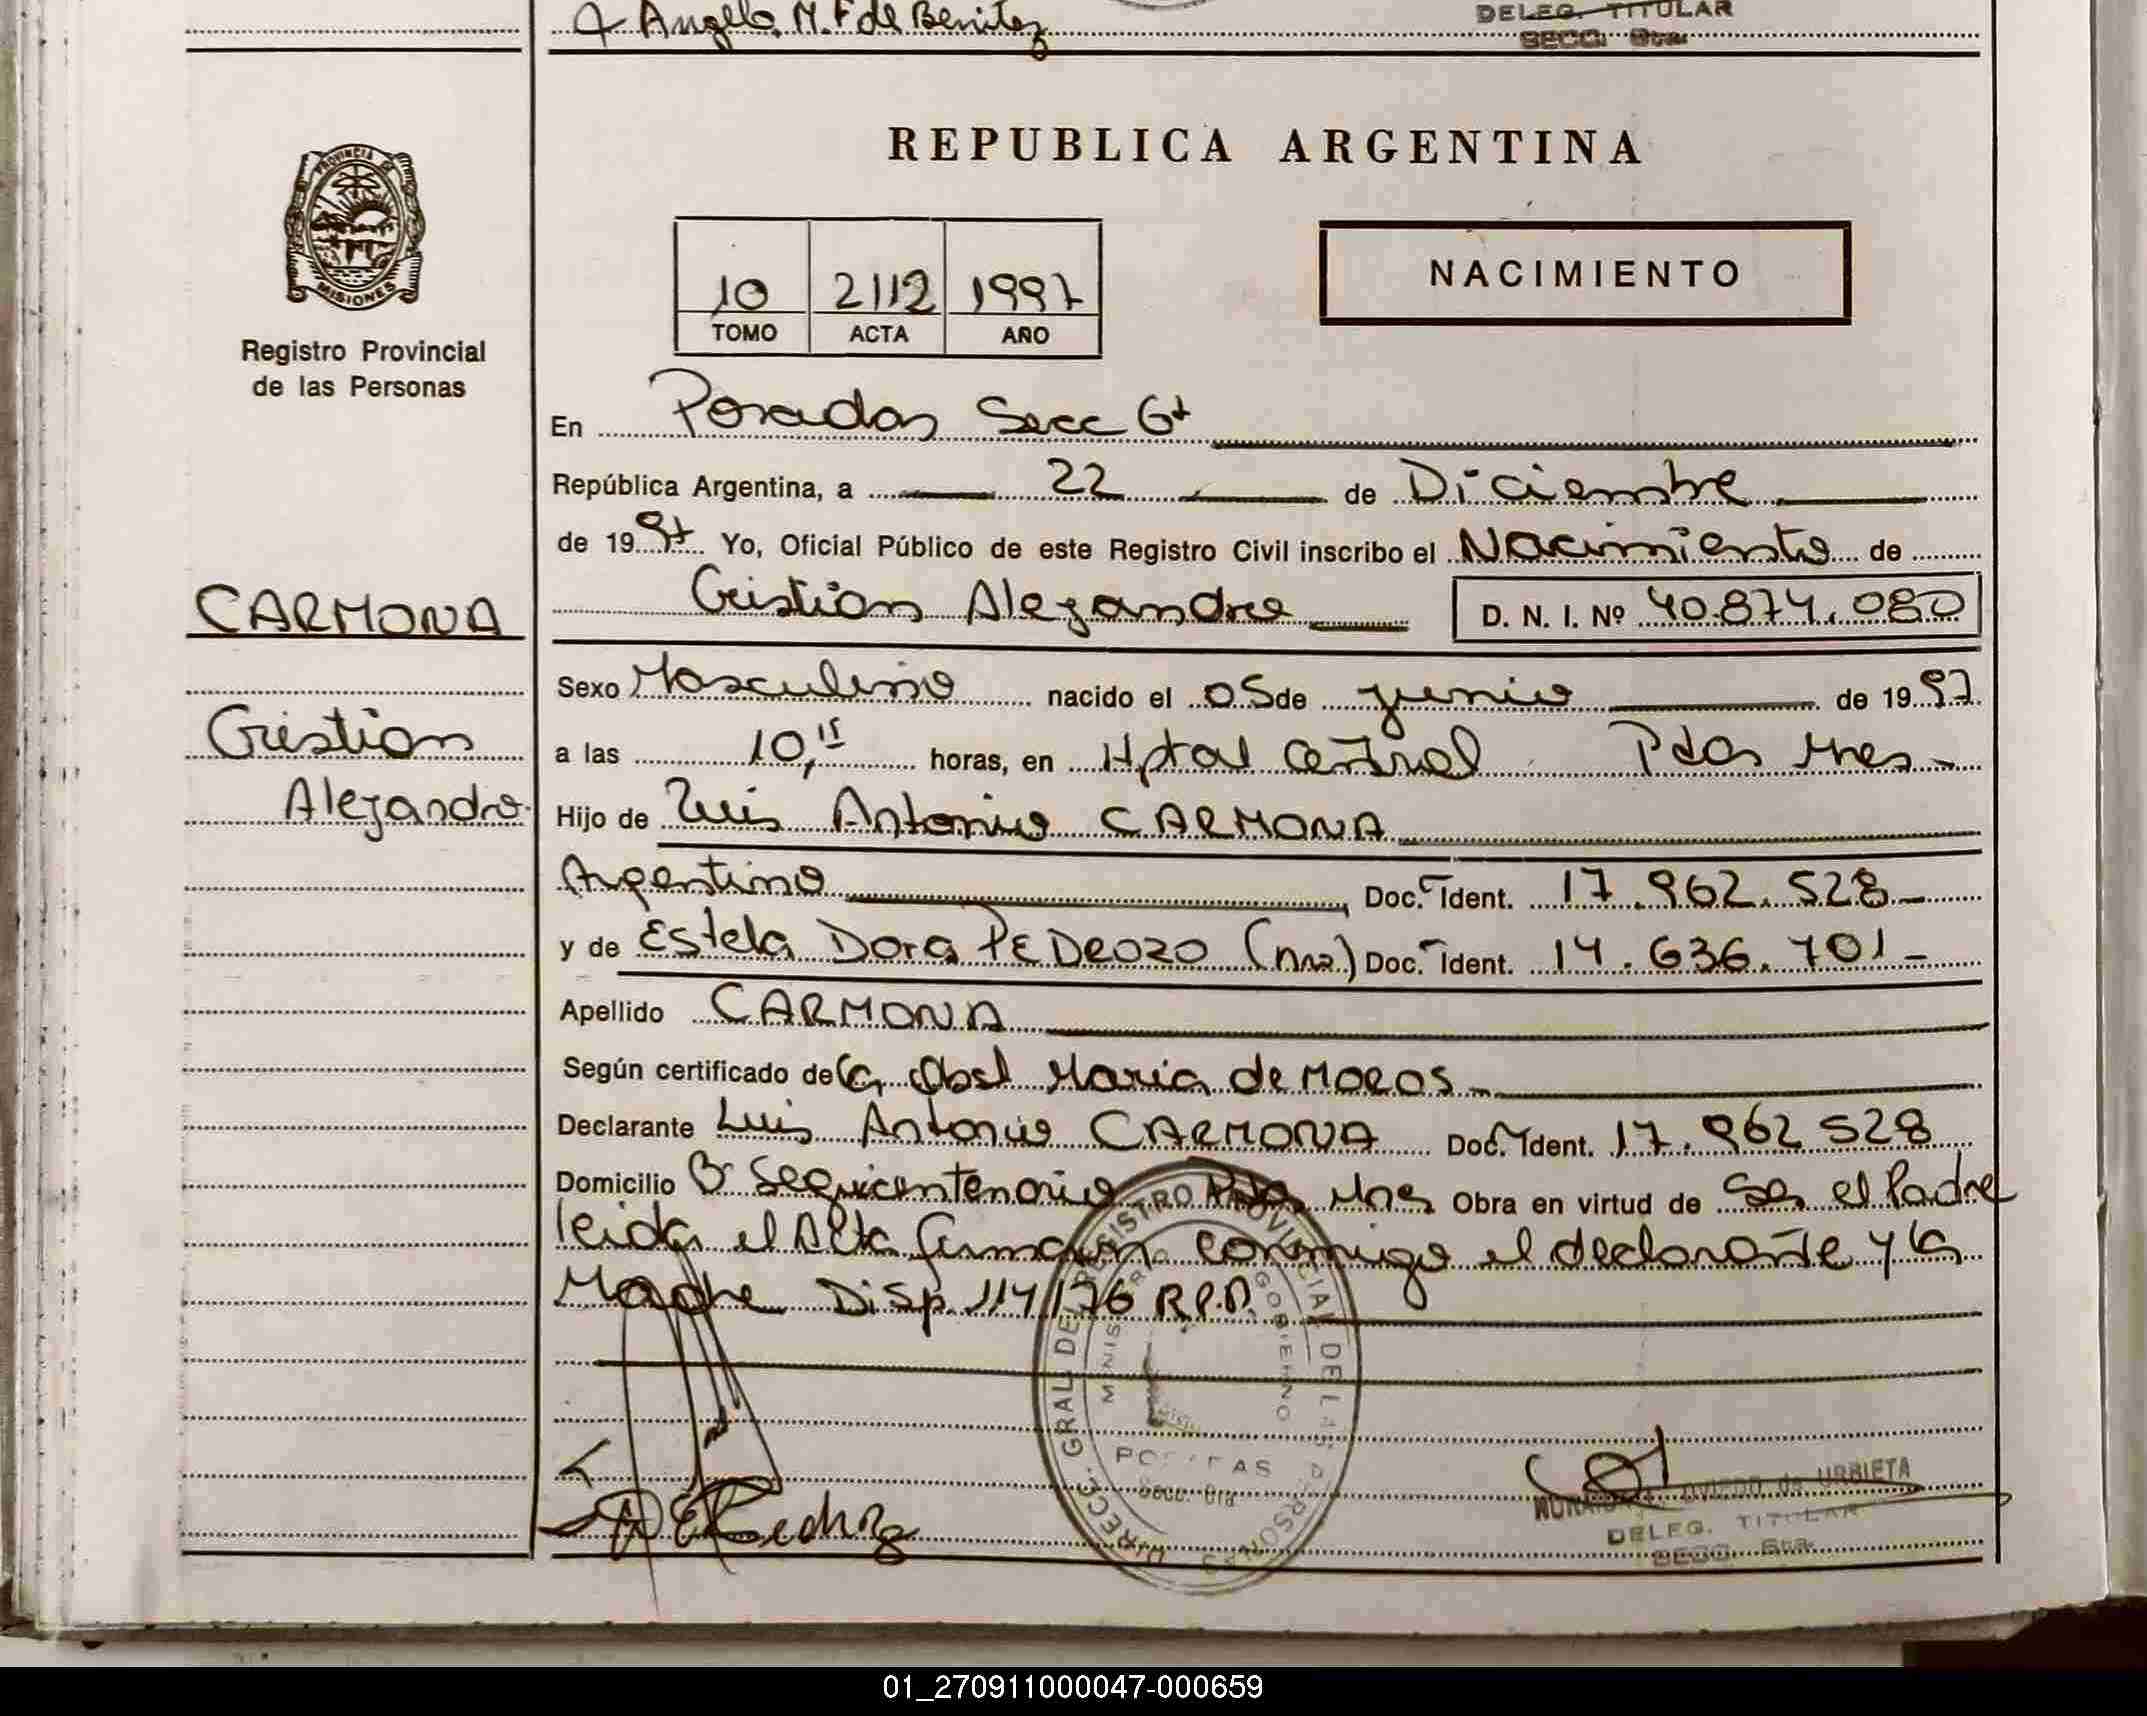 Angela M. F de Benitez
DELEG. TITULAR
SECC. 6ta.
PROVINCIA DE
MISIONES
Registro Provincial
de las Personas
REPUBLICA ARGENTINA
10 2112 1997
TOMO ACTA AÑO
NACIMIENTO
En Posadas Secc 6ta
República Argentina, a 22 de Diciembre
de 1997 Yo, Oficial Público de este Registro Civil inscribo el Nacimiento de
CARMONA
Cristian Alejandro D. N. I. Nº 40.874.080
Sexo Masculino nacido el 05 de junio de 1997
Cristian
a las 10,15 horas, en Hptal Central Pdas Mnes
Alejandro
Hijo de Luis Antonio CARMONA
Argentino Doc. Ident. 17.962.528
y de Estela Dora PEDROZO Doc. Ident. 14.636.701
Apellido CARMONA
Según certificado de la Obst Maria de MOROS
Declarante Luis Antonio CARMONA Doc. Ident. 17.962 528
Domicilio Bº Sequicentenario Pdas Mnes Obra en virtud de Ser el Padre
leida el Acta firman conmigo el declarante y la
Madre Disp. 114/76 R.P.P.
DIRECC. GRAL DEL REGISTRO PROVINCIAL DE LAS PERSONAS
GOBIERNO
POSADAS
Secc. 6ta
E Pedroz
OVIEDO de URBIETA
DELEG. TITULAR
SECC. 6ta.
01_270911000047-000659